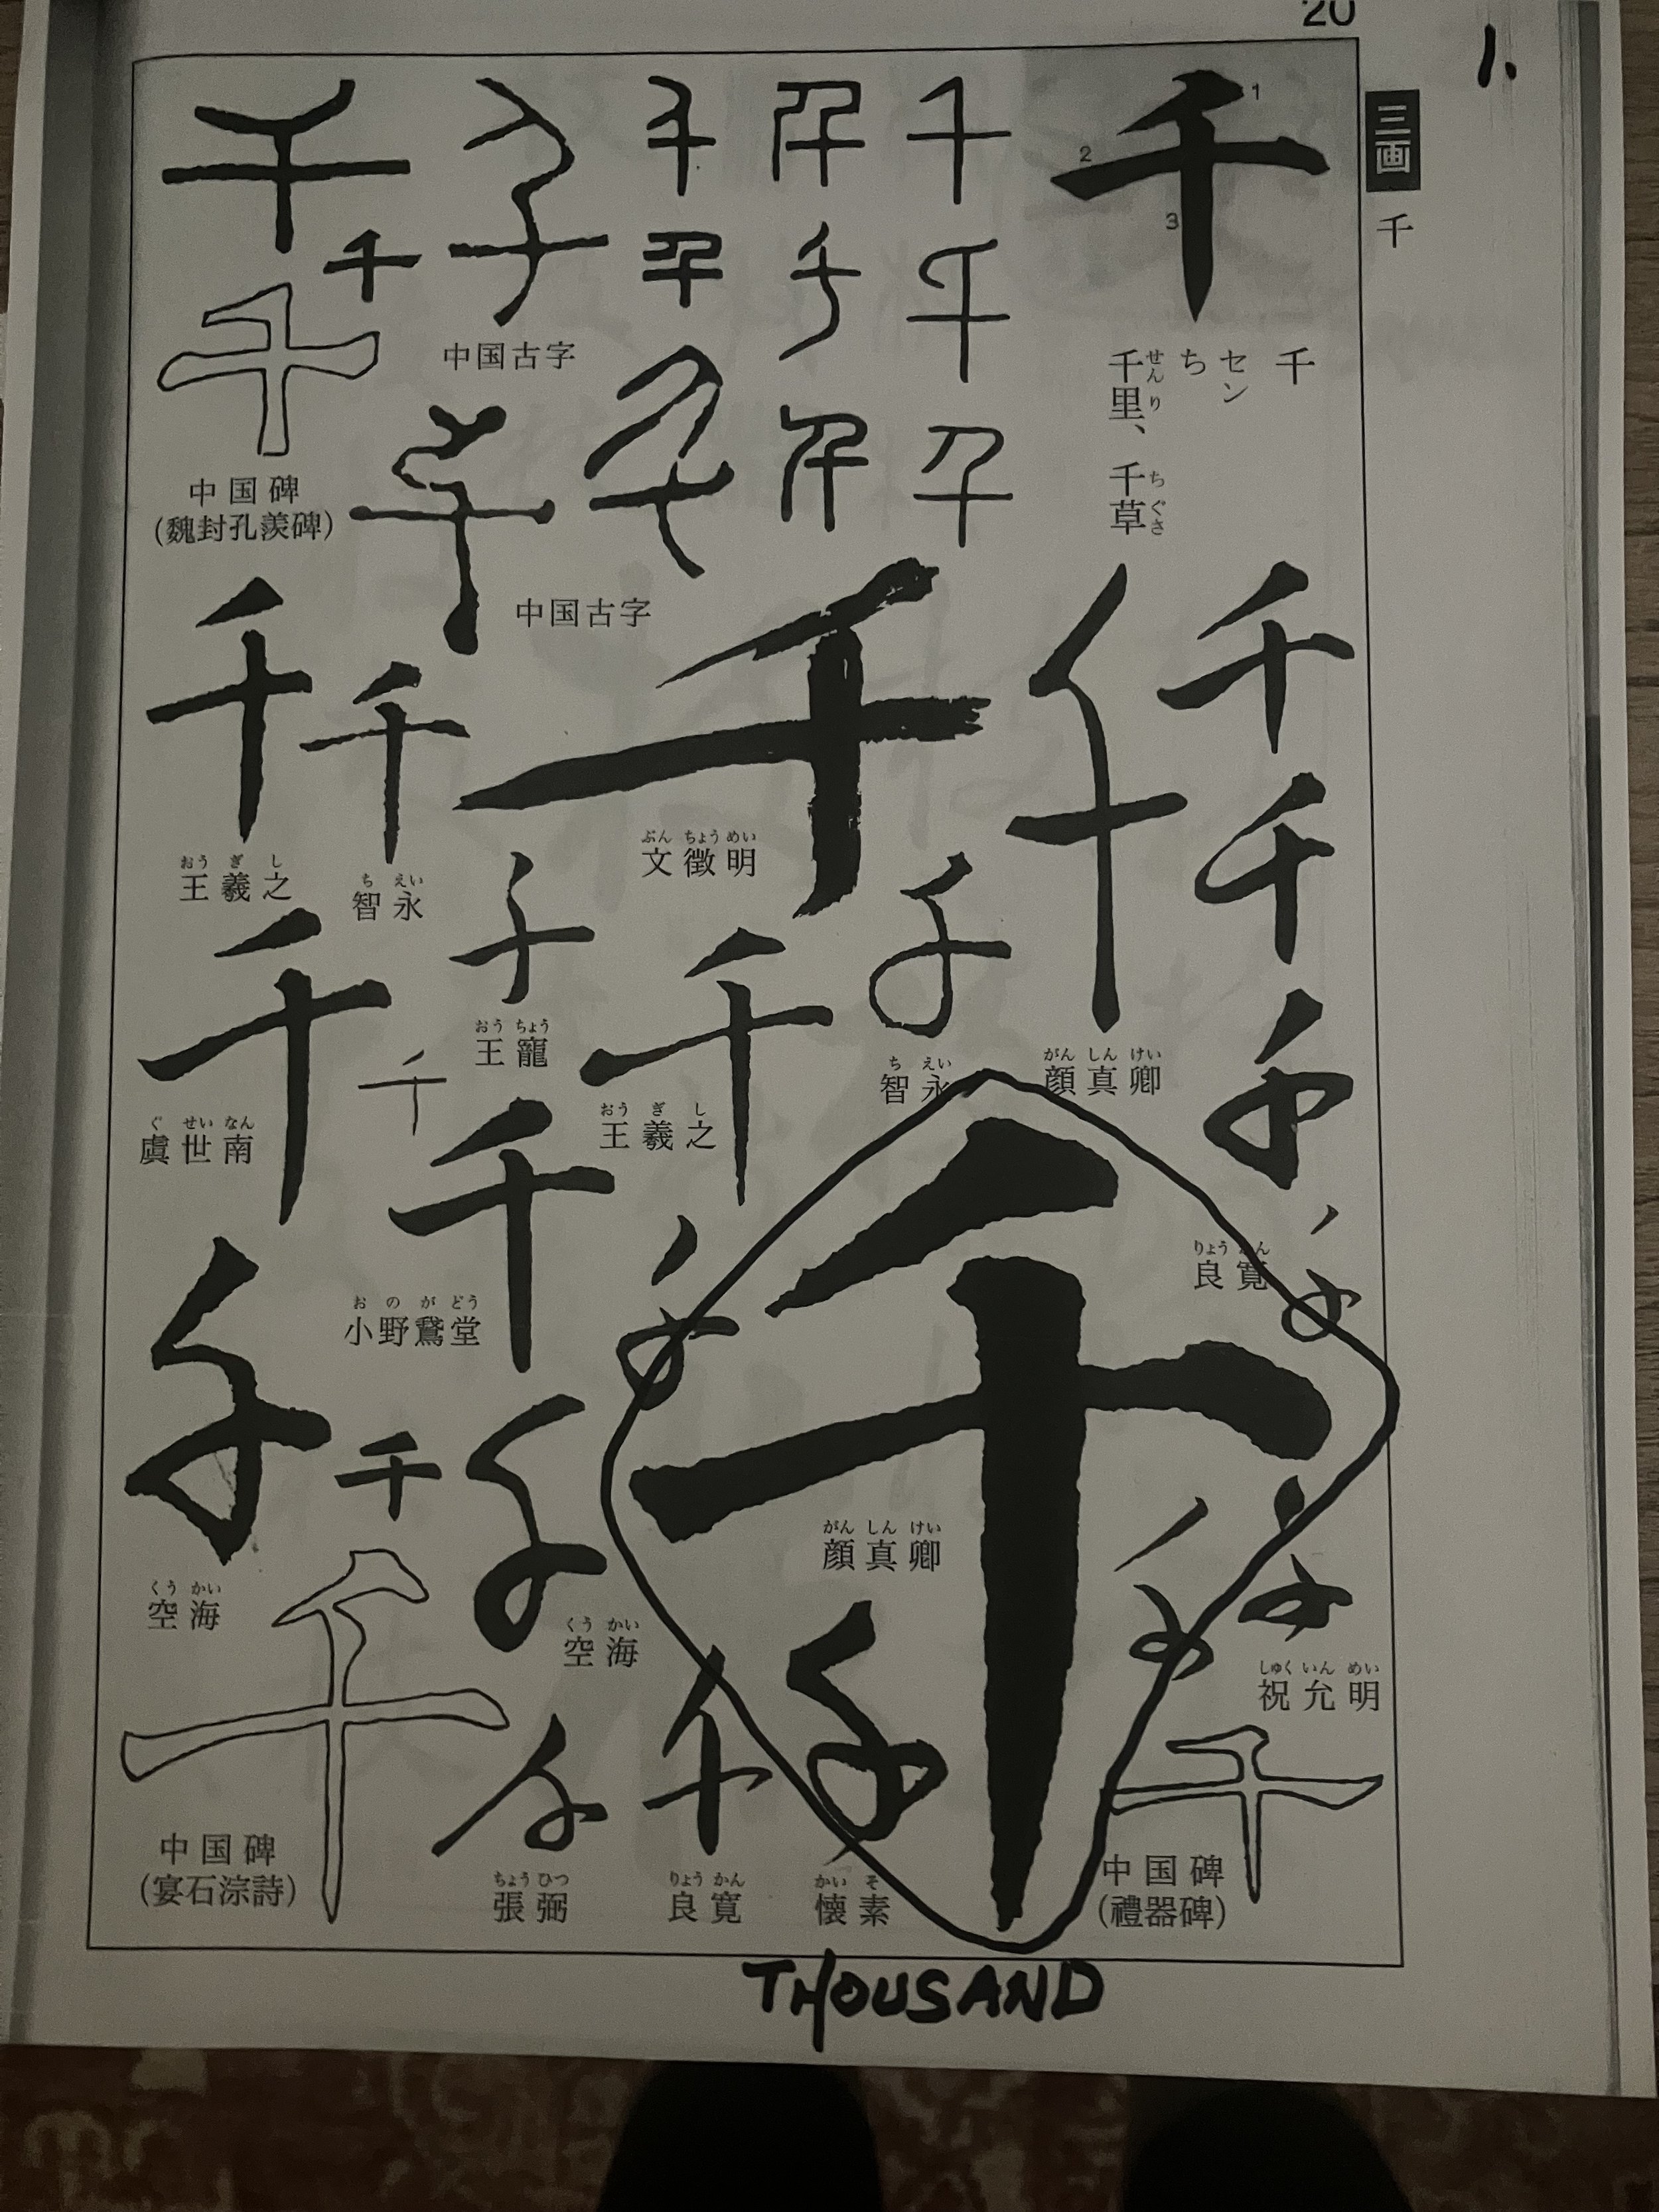 20
1.
三画
千
千
1
2
3
千
セン
ち
千里、千草
せんり
ちぐさ
千
千
千
千
千
千
千
千
千
千
中国古字
千
千
中国古字
千
千
千
中国碑
(魏封孔羨碑)
千
千
千
千
りょう かん
良寛
千
がん しん けい
顔真卿
千
ぶん ちょう めい
文徴明
千
ち えい
智永
千
おう ぎ し
王羲之
千
おう ちょう
王寵
千
ち えい
智永
千
おう ぎ し
王羲之
千
ぐ せい なん
虞世南
千
千
お の が どう
小野鵞堂
千
千
千
千
しゅく いん めい
祝允明
千
がん しん けい
顔真卿
千
中国碑
(禮器碑)
千
かい そ
懐素
千
りょう かん
良寛
千
ちょう ひつ
張弼
千
くう かい
空海
千
くう かい
空海
千
千
中国碑
(宴石淙詩)
THOUSAND